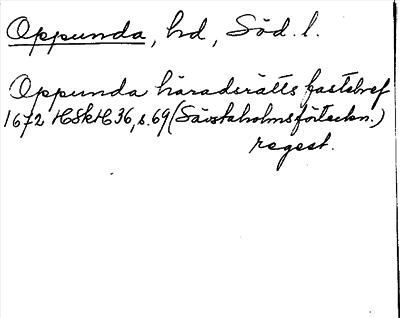 Oppunda, hd, Söd. l.
Oppunda häradsrätts fastebref
1672 HSkH 36, s. 69 (Säfstaholmsförteckn.)
regest.